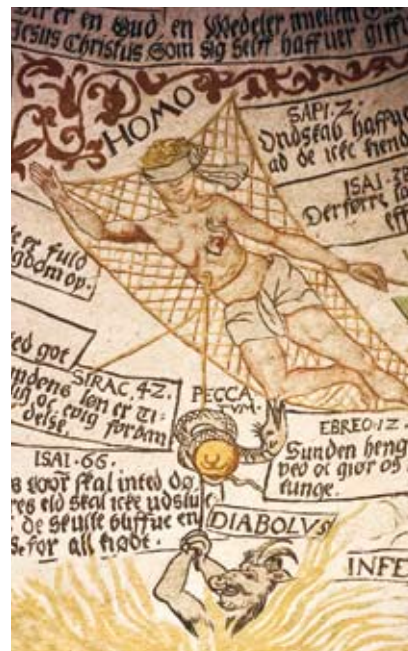 er en Gud, en Medeler mellem
Jesus Christus Som sig selff haffuer giffu
HOMO
SAPI. 2.
Ondskab haffue
ad de icke kiend
ISAI.
Derforre
er fuld
gdom op.
ted got
SIRAC. 42.
ndens løn er
oc evig forban
delse.
PECCA
TVM.
EBREO: 12.
Sunden heng
ved oc giør os
tunge.
ISAI. 66.
s door skal inted dø,
res eld skal icke udsluc
de skulle bliffue en
for all kiødt.
DIABOLVS
INFE